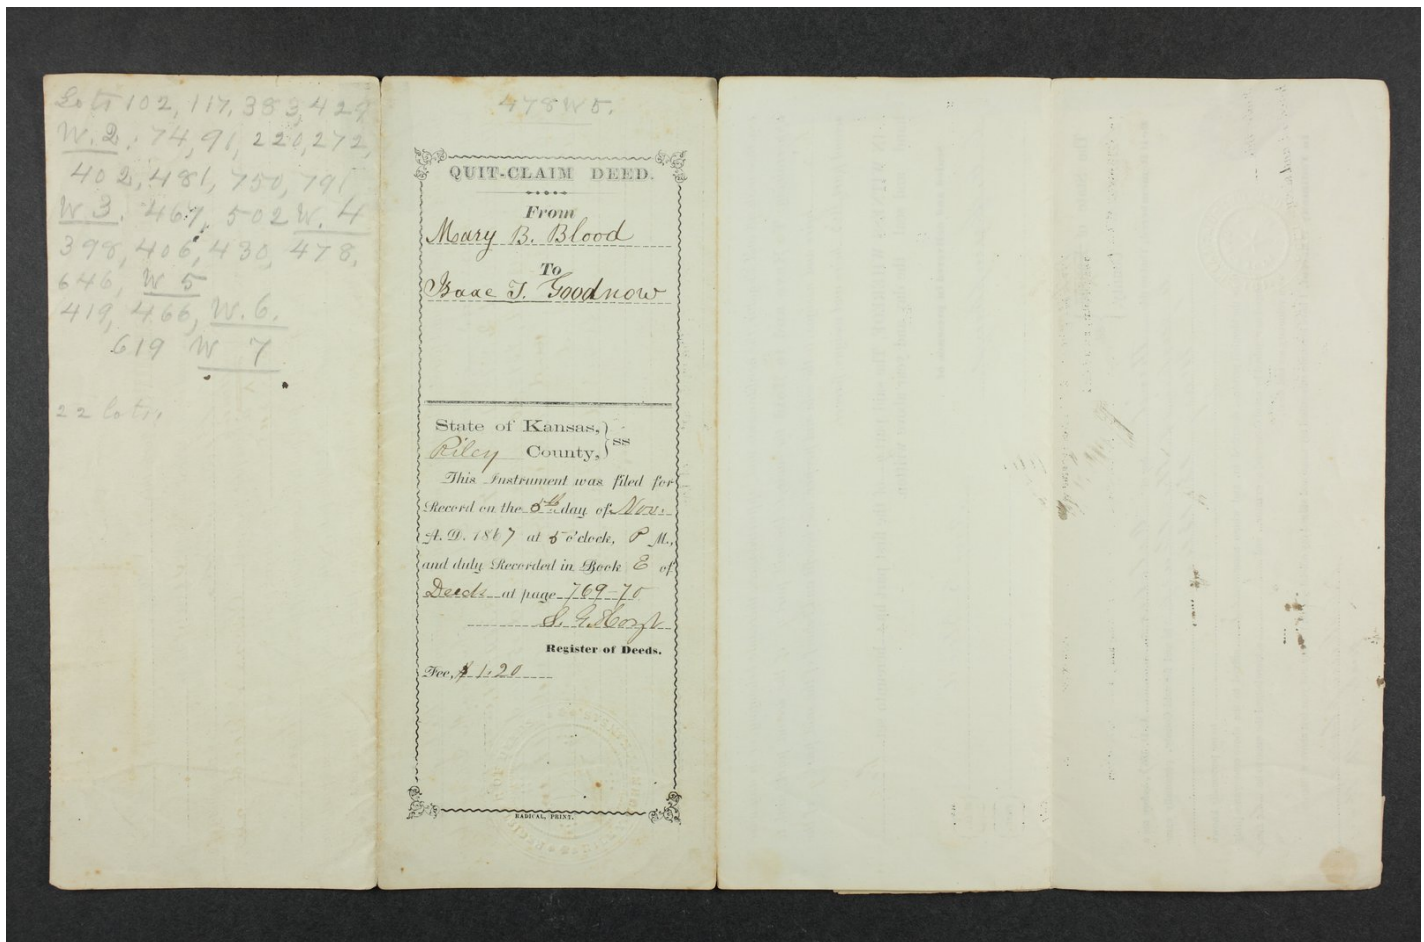 Lots 102, 117, 383, 429
W. 2. 74, 91, 220, 272,
402, 481, 750, 791
W 3. 467, 502 W. 4
398, 406, 430, 478,
646, W 5
419, 466, W. 6.
619 W 7
22 lots.
478 W 5.
QUIT-CLAIM DEED.
From
Mary B. Blood
To
Isaac T. Goodnow
State of Kansas, } ss
Riley County,
This Instrument was filed for
Record on the 5th day of Nov.
A. D. 1867 at 5 o'clock, P M.,
and duly Recorded in Book E of
Deeds at page 769-70
S. G. Hoyt
Register of Deeds.
Fee, $ 1.20
RADICAL, PRINT.